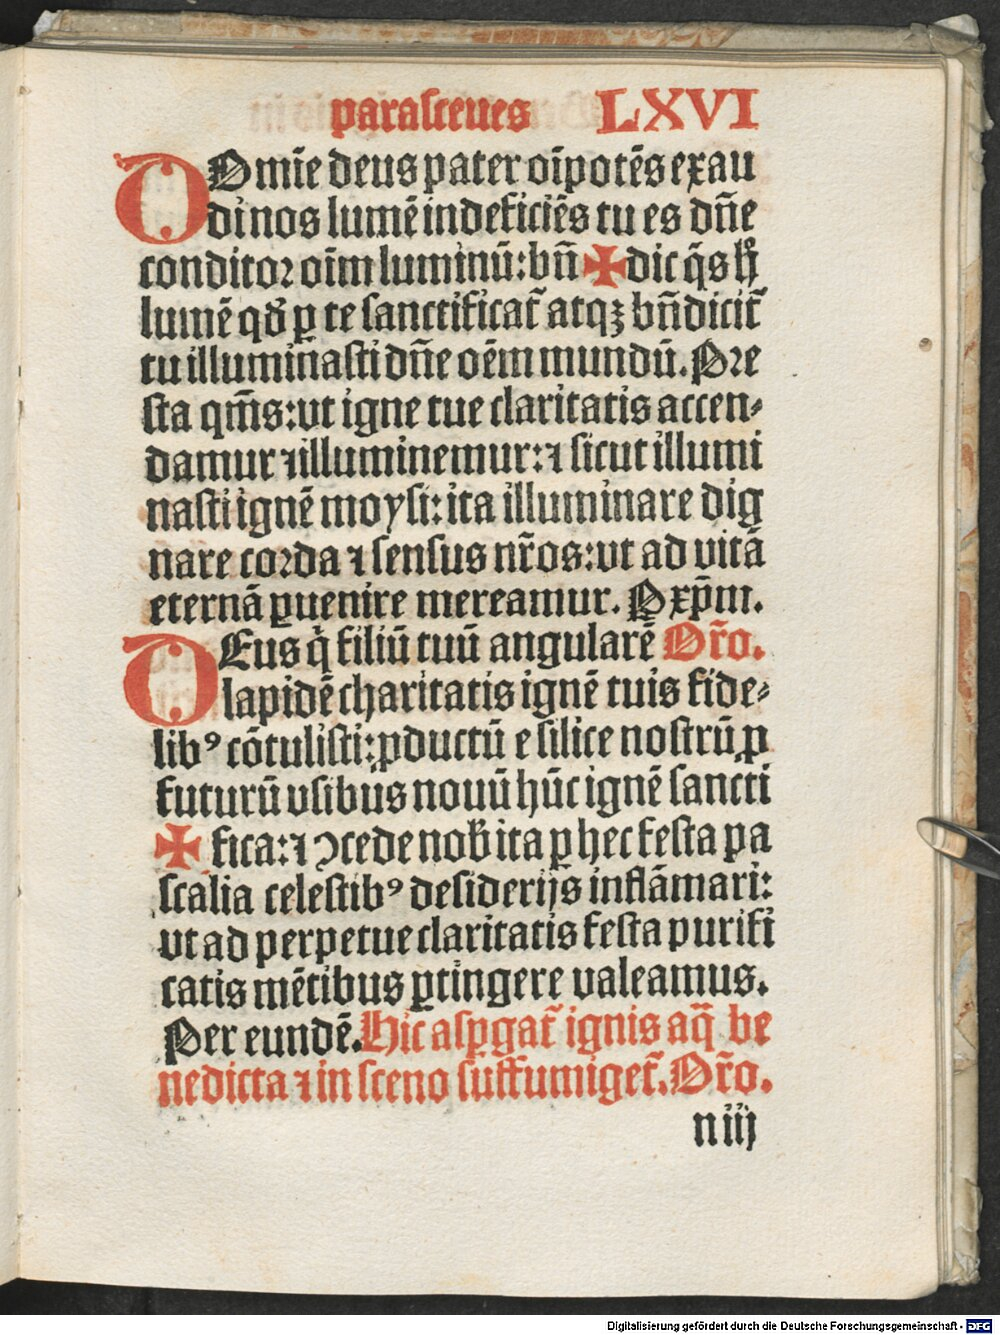 parasceues LXVI
DOmīe deus pater oīpotēs exau
di nos lumē indeficiēs tu es dn̄e
conditor oīm luminū: bn̄ ✠ dic q̄s h̄
lumē qđ ꝑ te sanctificat̄ atqꝫ bn̄dicit̄
tu illuminasti dn̄e oēm mundū. Pre
sta qm̄s: ut igne tue claritatis accen⸗
damur ⁊ illuminemur: ⁊ sicut illumi
nasti ignē moysi: ita illuminare dig
nare corda ⁊ sensus nr̄os: ut ad vitā
eternā ꝑuenire mereamur. P xp̄m.
DEus q̇ filiū tuū angularē Or̄o.
lapidē charitatis ignē tuis fide⸗
libꝰ cōtulisti: ꝓductū e silice nostrū ꝓ
futurū usibus nouū hūc ignē sancti
✠ fica: ⁊ ↄcede nob̄ ita ꝑ hec festa pa
scalia celestibꝰ desiderijs inflāmari:
ut ad perpetue claritatis festa purifi
catis mētibus ꝑtingere valeamus.
Per eundē. Hic aspgat̄ ignis aq̄ be
nedicta ⁊ in sceno suffumiget̄. Or̄o.
n iij
Digitalisierung gefördert durch die Deutsche Forschungsgemeinschaft - DFG